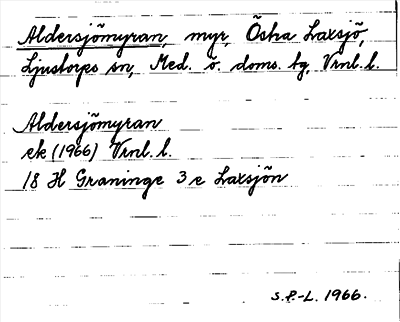 Aldersjömyran, myr, Östra Laxsjö,
Ljustorps sn, Med. ö. doms. tg, Vrnl. l.
Aldersjömyran
ek (1966) Vrnl. l.
18 H Graninge 3 e Laxsjön
S.P.-L. 1966.